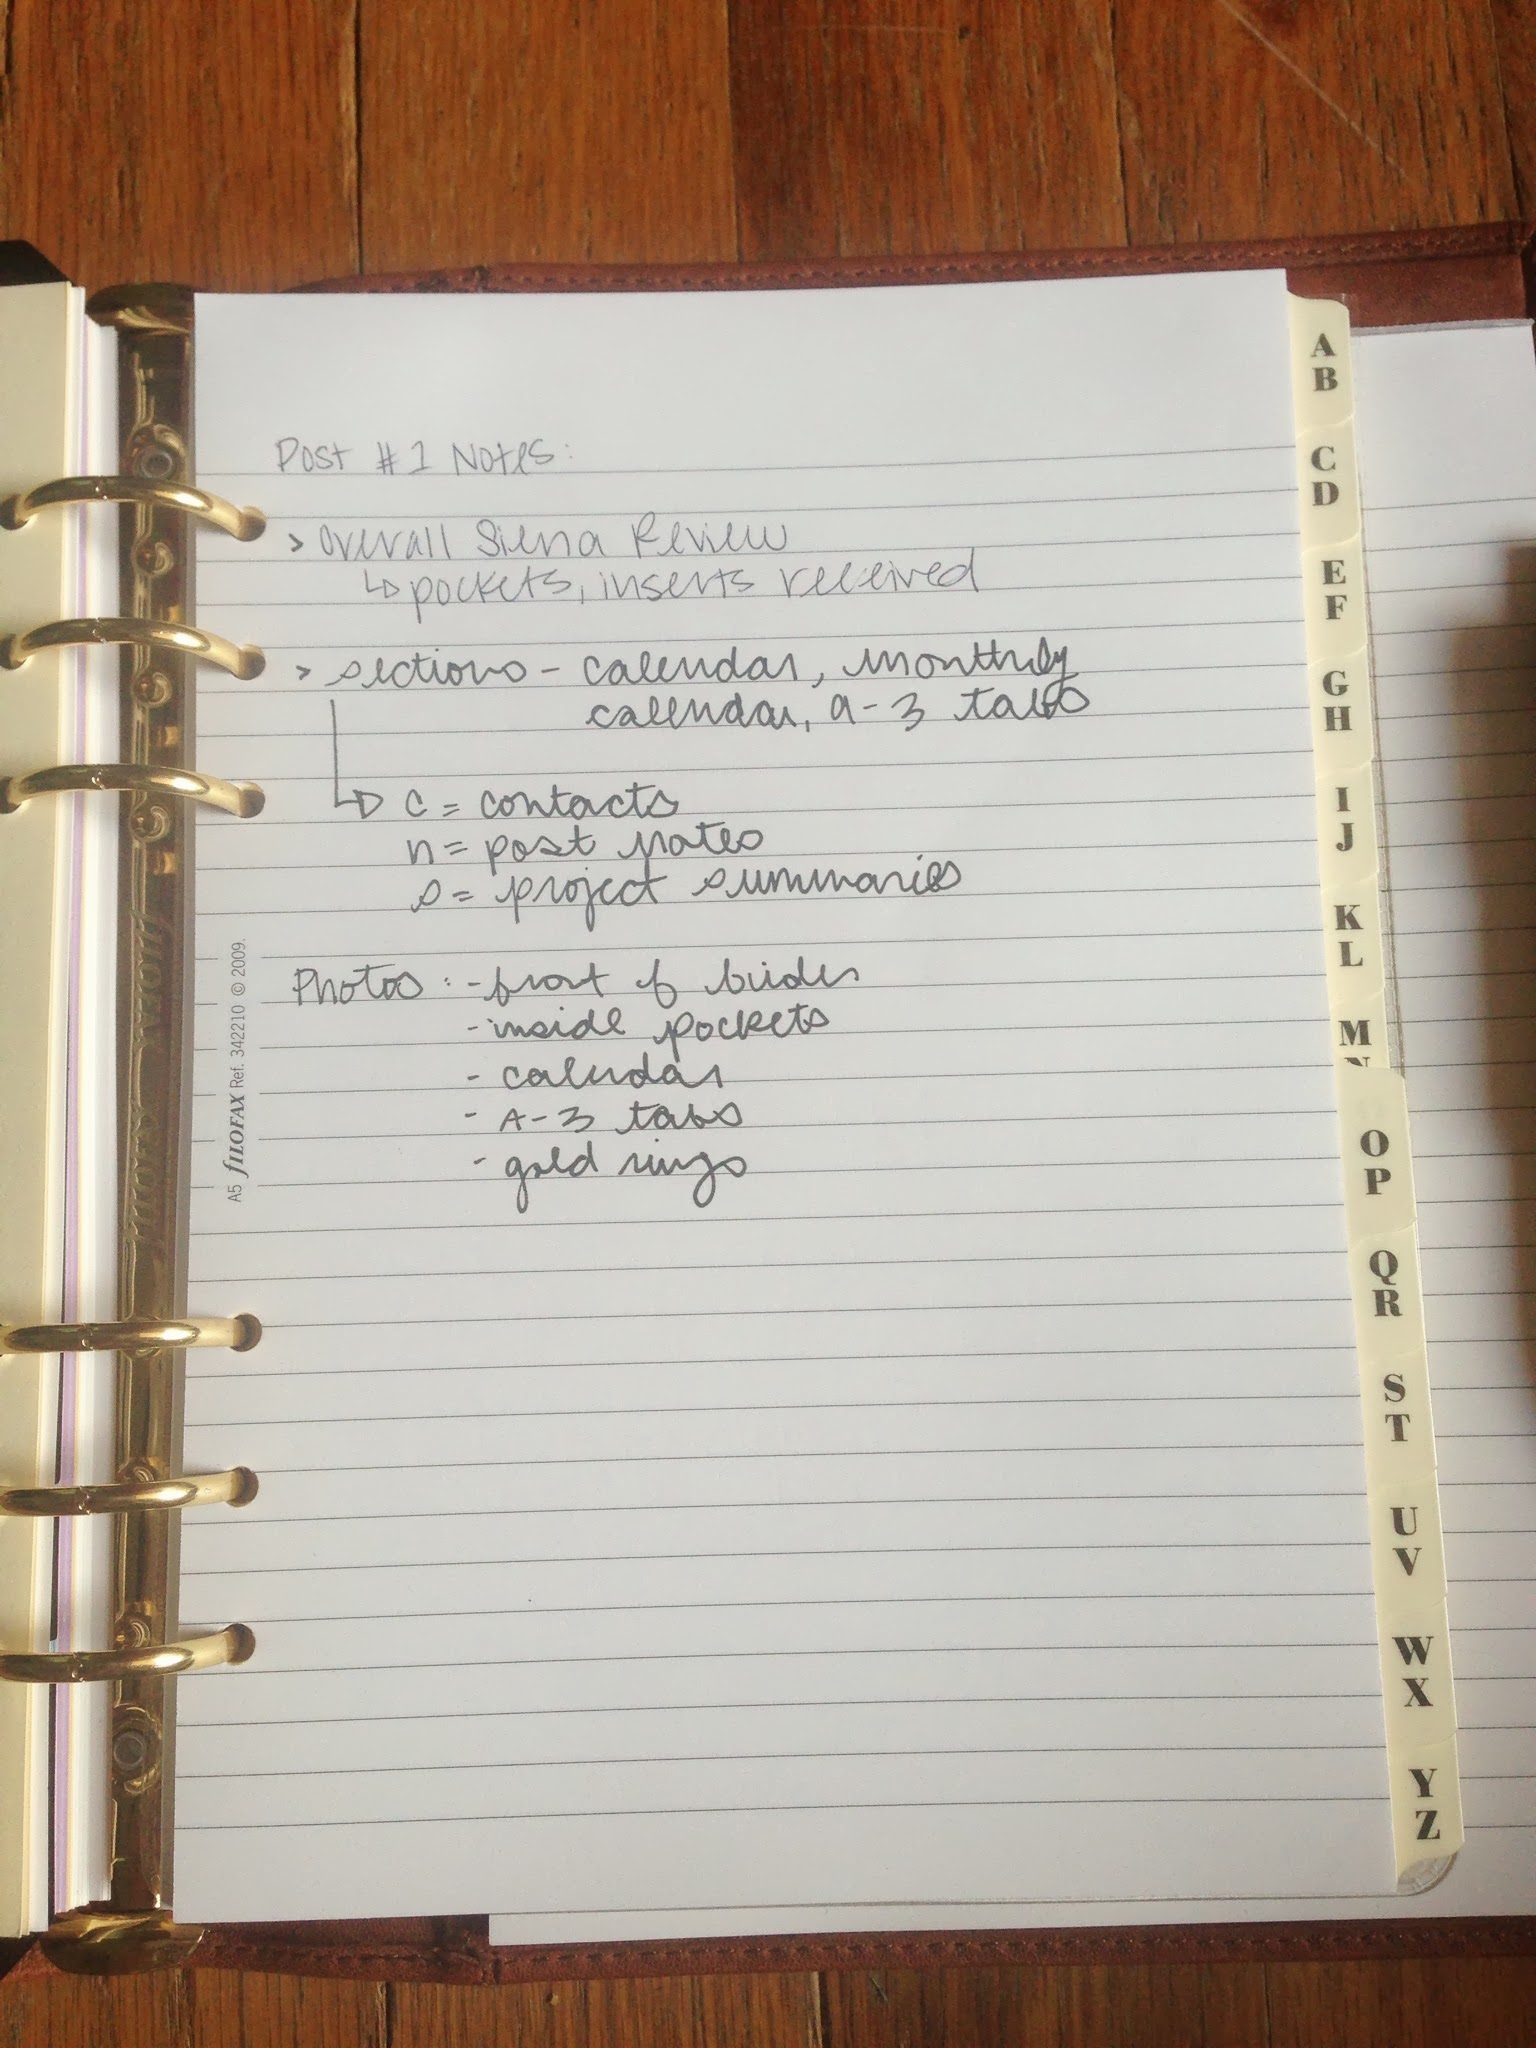 Post #1 Notes:
> Overall Siena Review
↳ pockets, inserts received
> sections - calendar, monthly
calendar, a-z tabs
↳ c = contacts
n = post notes
s = project summaries
Photos: - front of binder
- inside pockets
- calendar
- A-Z tabs
- gold rings
A5 fILOFAX Ref. 342210 © 2009.
A
B
C
D
E
F
G
H
I
J
K
L
M
N
O
P
Q
R
S
T
U
V
W
X
Y
Z